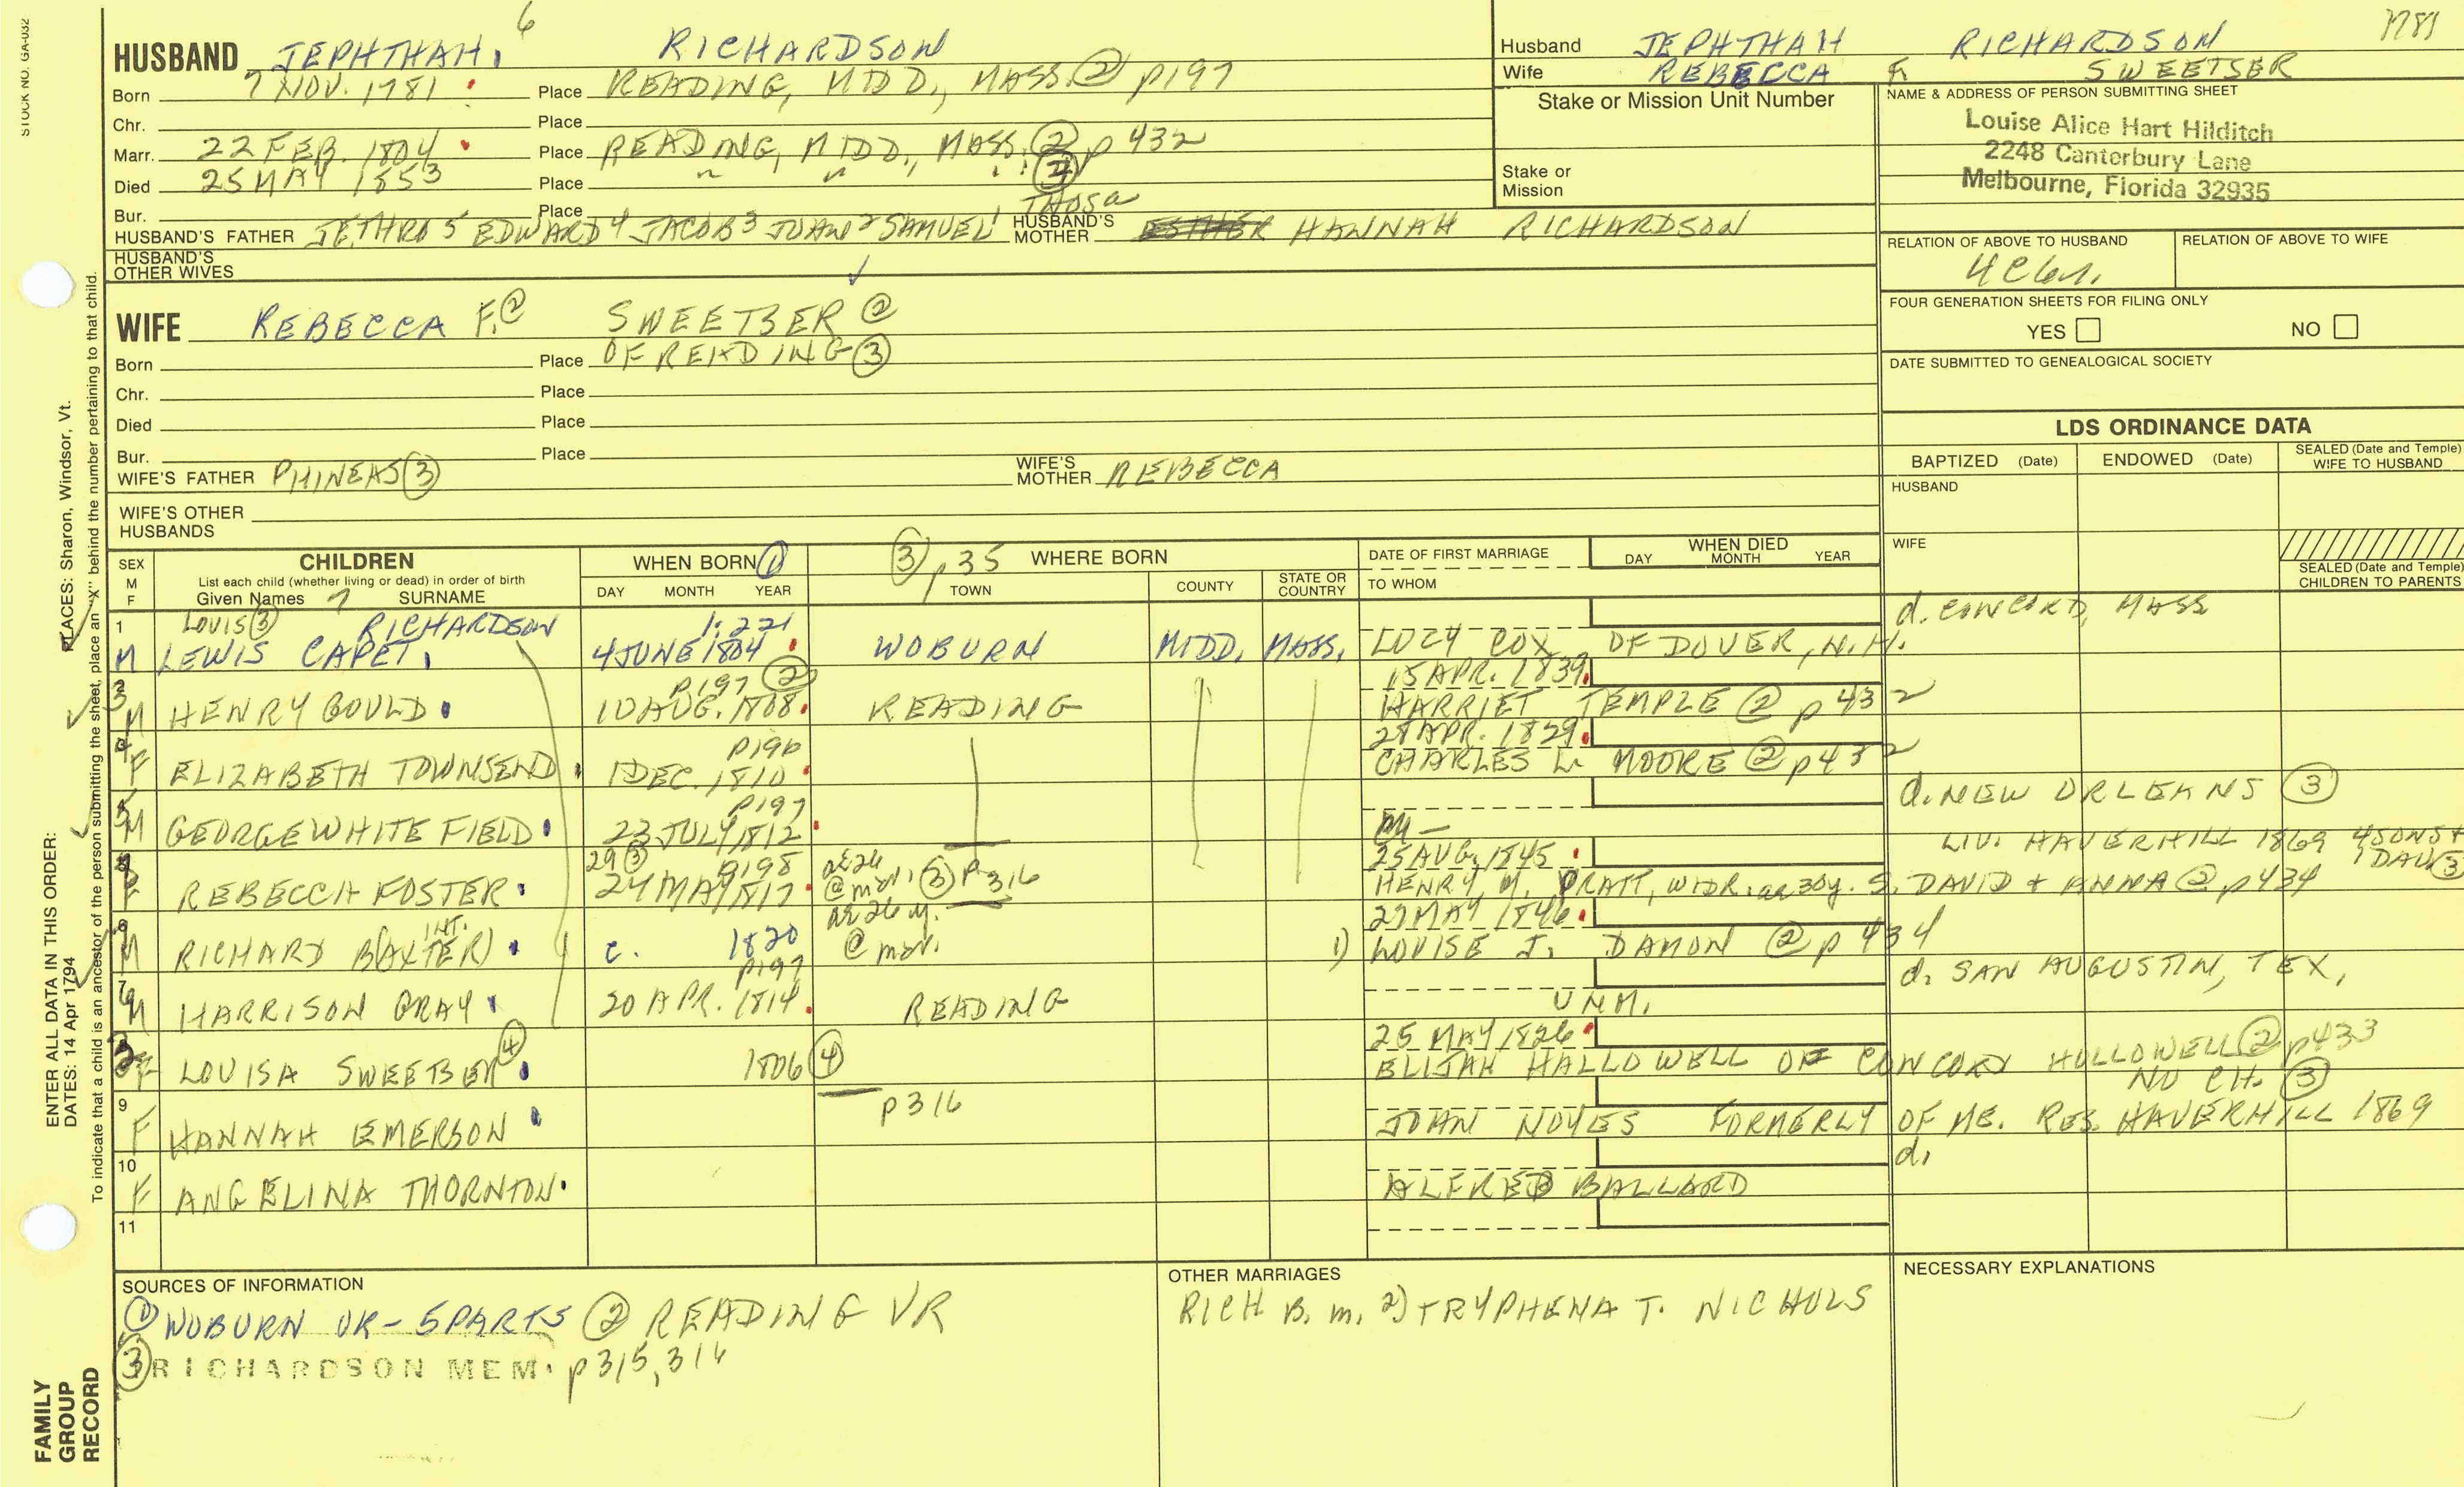 STOCK NO. GA-032
6
1781
HUSBAND JEPHTHAH, RICHARDSON
Born 7 NOV. 1781 Place READING, MIDD., MASS ② p197
Chr. Place
Marr. 22 FEB. 1804 Place READING, MIDD., MASS. ② p 432
Died 25 MAY 1853 Place " " " ③
Bur. Place
HUSBAND'S FATHER JETHRO 5 EDWARD 4 JACOB 3 JOHN 2 SAMUEL 1 HUSBAND'S MOTHER ESTHER HANNAH RICHARDSON
HUSBAND'S OTHER WIVES
Husband JEPHTHAH RICHARDSON
Wife REBECCA F. SWEETSER
Stake or Mission Unit Number
Stake or Mission
NAME & ADDRESS OF PERSON SUBMITTING SHEET
Louise Alice Hart Hilditch
2248 Canterbury Lane
Melbourne, Florida 32935
RELATION OF ABOVE TO HUSBAND
RELATION OF ABOVE TO WIFE
FOUR GENERATION SHEETS FOR FILING ONLY
YES NO
DATE SUBMITTED TO GENEALOGICAL SOCIETY
WIFE REBECCA F. ② SWEETSER ②
Born Place OF READING ③
Chr. Place
Died Place
Bur. Place
WIFE'S FATHER PHINEAS ③ WIFE'S MOTHER REBECCA
WIFE'S OTHER HUSBANDS
LDS ORDINANCE DATA
BAPTIZED (Date) ENDOWED (Date) SEALED (Date and Temple) WIFE TO HUSBAND
HUSBAND
WIFE
SEALED (Date and Temple) CHILDREN TO PARENTS
SEX M F
CHILDREN
List each child (whether living or dead) in order of birth
Given Names 7 SURNAME
WHEN BORN ①
DAY MONTH YEAR
③ p35 WHERE BORN
TOWN COUNTY STATE OR COUNTRY
DATE OF FIRST MARRIAGE
TO WHOM
WHEN DIED
DAY MONTH YEAR
1 LOUIS ③ RICHARDSON 1:221 d. CONCORD, MASS
M LEWIS CAPET, 4 JUNE 1804 WOBURN MIDD. MASS. LUCY COX OF DOVER, N.H.
3 p197 ② 15 APR. 1839
M HENRY GOULD 10 AUG. 1808 READING HARRIET TEMPLE ② p 432
4 p196 28 APR. 1829
F ELIZABETH TOWNSEND 1 DEC. 1810 CHARLES L. MOORE ② p432
5 p197 d. NEW ORLEANS ③
M GEORGE WHITE FIELD 23 JULY 1812
29 ③ p198 ae 24 25 AUG. 1845 LIV. HAVERHILL 1869 4 SONS + 1 DAU ③
F REBECCA FOSTER 24 MAY 1817 @ mar. ③ p316 HENRY M. PRATT, WIDR. ae 30y. S. DAVID + ANNA ② p434
INT. ae 26 y. 27 MAY 1846
M RICHARD B(AXTER) c. 1820 @ mar. 1) LOUISE J. DAMON ② p 434
7 p197 d. SAN AUGUSTIN, TEX,
M HARRISON GRAY 20 APR. 1814 READING UNM.
④ 25 MAY 1826
F LOUISA SWEETSER 1806 ④ ELIJAH HALLOWELL OF CONCORD HOLLOWELL ② p433
NO CH. ③
9 p316
F HANNAH EMERSON JOHN NOYES FORMERLY OF ME. RES. HAVERHILL 1869
10 d.
F ANGELINA THORNTON ALFRED BALLARD
11
SOURCES OF INFORMATION
① WOBURN VR - 5 PARTS ② READING VR
③ RICHARDSON MEM. p315, 316
OTHER MARRIAGES
RICH B. m. 2) TRYPHENA T. NICHOLS
NECESSARY EXPLANATIONS
ENTER ALL DATA IN THIS ORDER:
DATES: 14 Apr 1794
PLACES: Sharon, Windsor, Vt.
To indicate that a child is an ancestor of the person submitting the sheet, place an "X" behind the number pertaining to that child.
FAMILY
GROUP
RECORD